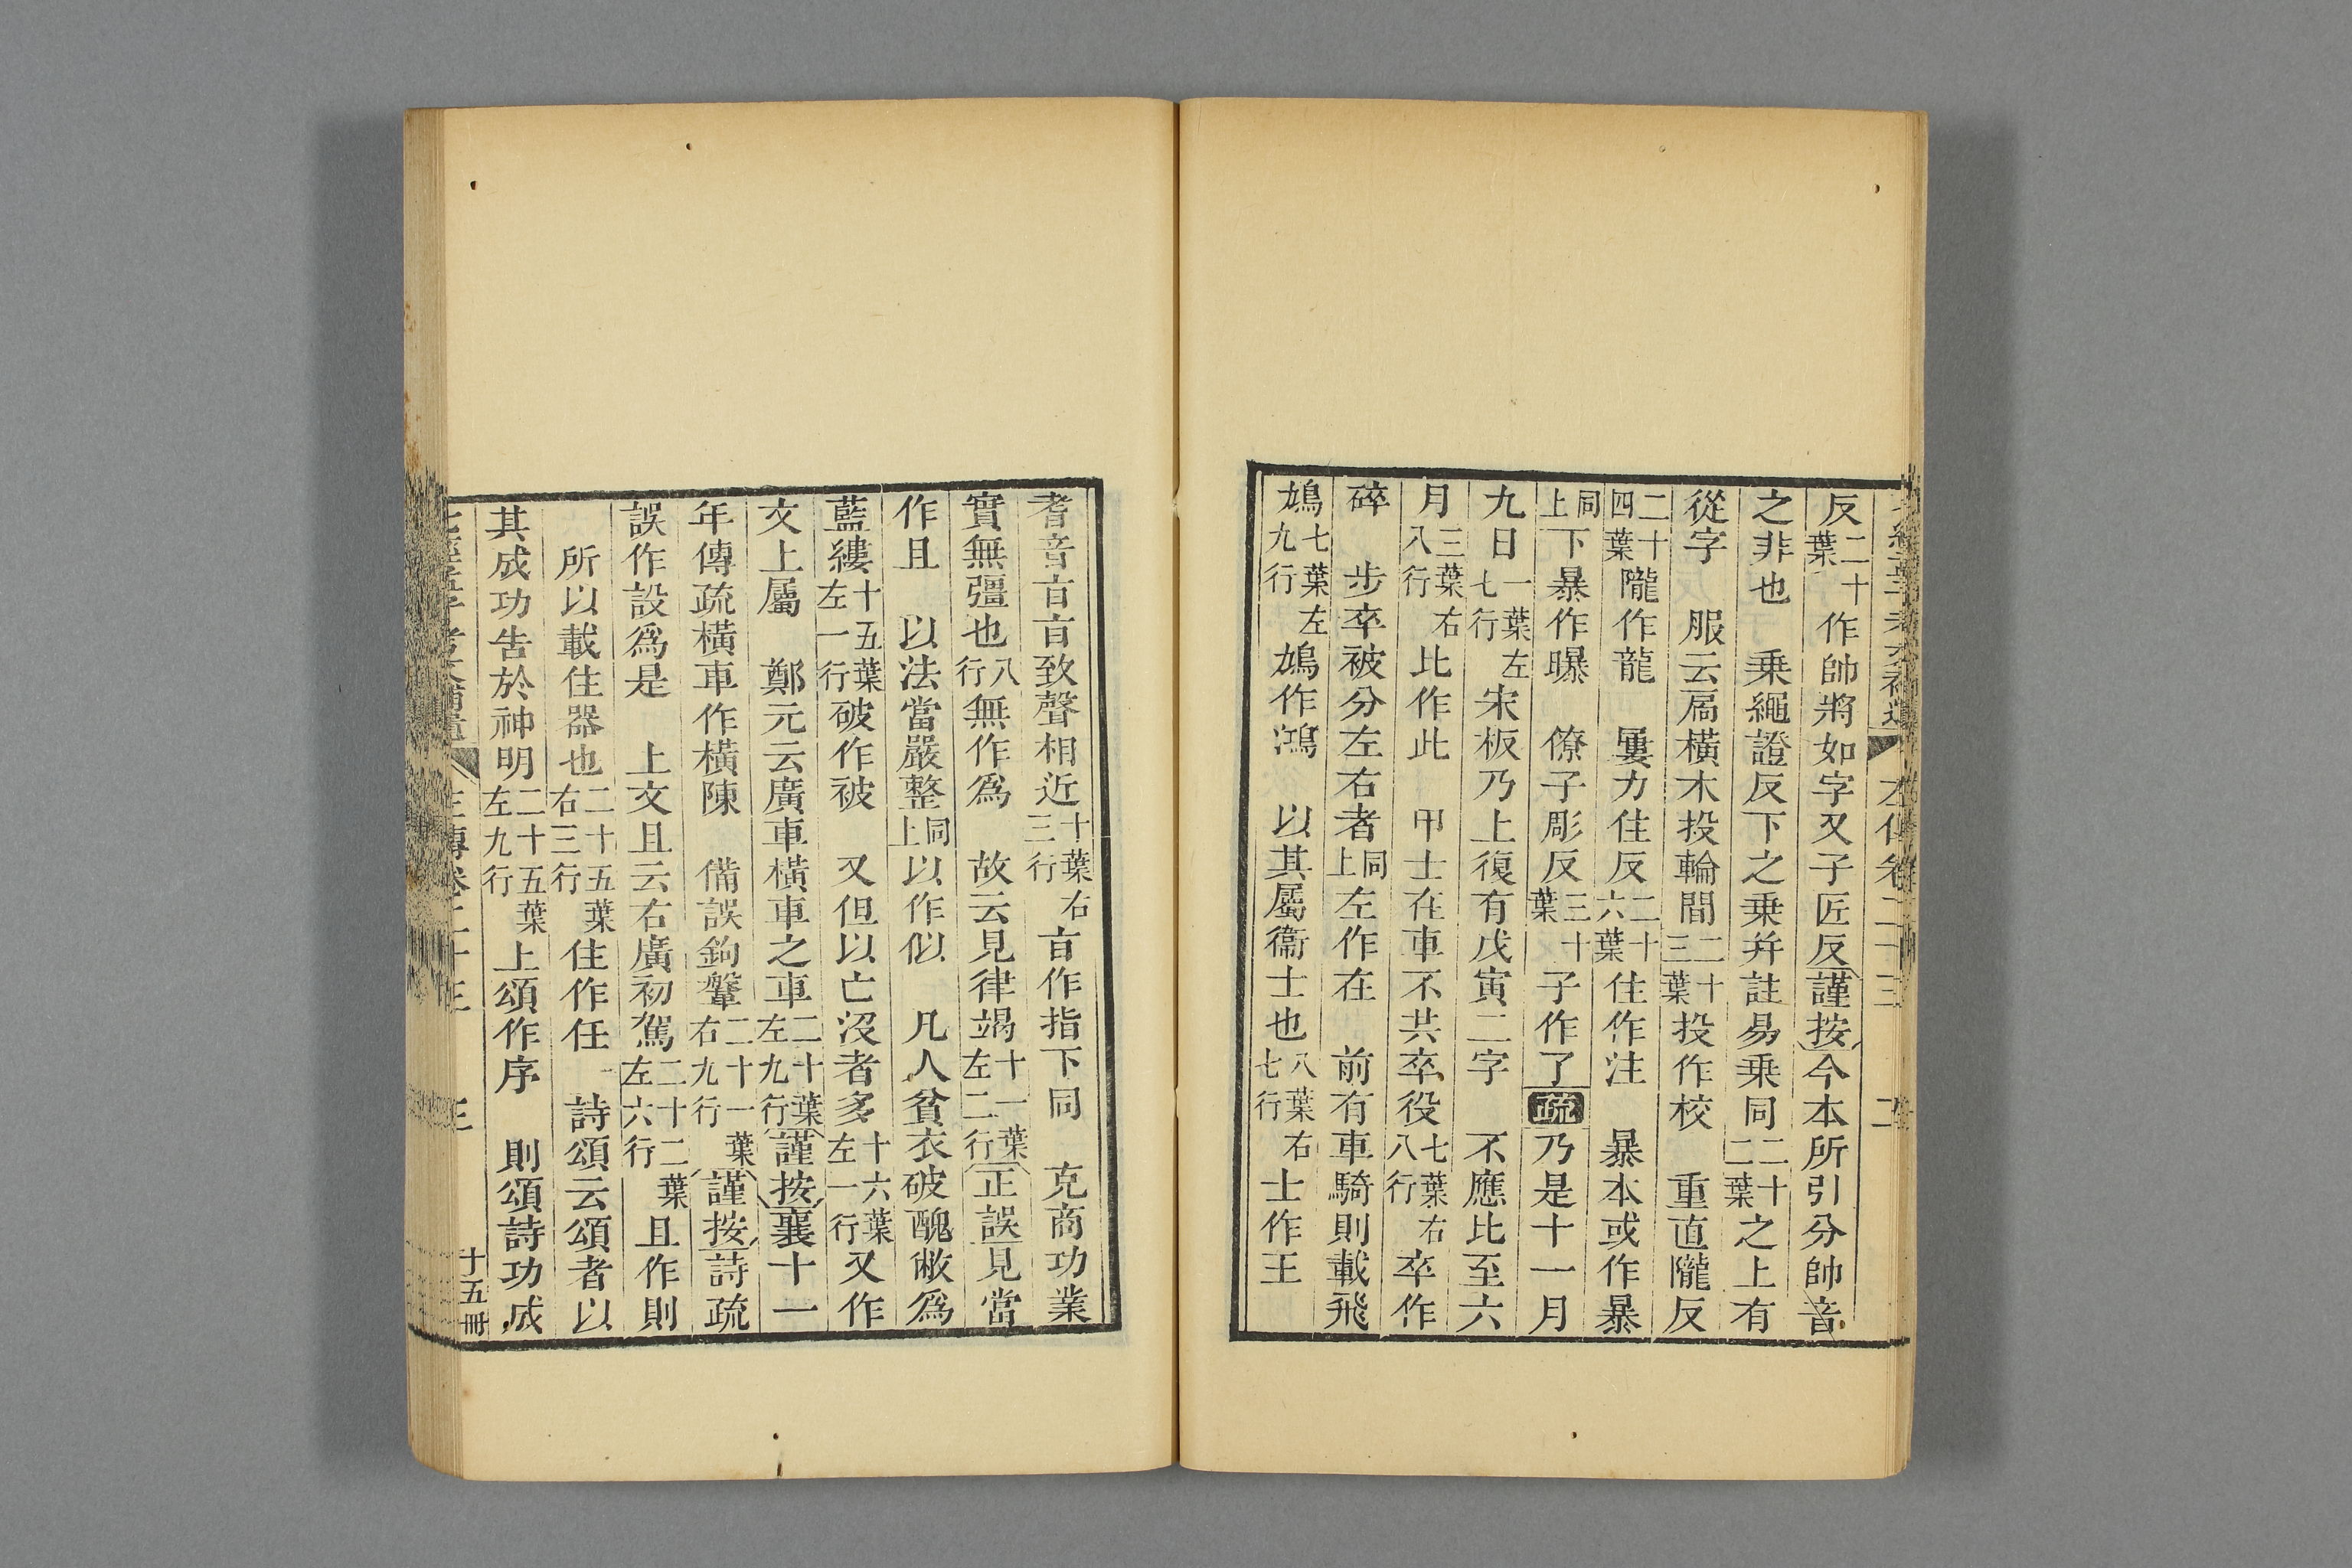 七經孟子考文補遺 左傳卷二十三 二
反二十葉作帥將如字又子匠反謹按今本所引分帥音
之非也 乗繩證反下之乗并註易乗同二十二葉之上有
從字 服云扃橫木投輪間二十三葉投作校 重直隴反
二十四葉隴作龍 屢力住反二十六葉住作注 暴本或作暴
同上下暴作曝 僚子彫反三十葉子作了 疏 乃是十一月
九日一葉左七行宋板乃上復有戊寅二字 不應比至六
月三葉右八行比作此 甲士在車不共卒役七葉右八行卒作
碎 步卒被分左右者同上左作在 前有車騎則載飛
七葉左九行 作鴻 以其屬衞士也八葉右七行士作王
耆音㫖㫖致聲相近十葉右三行㫖作指下同 克商功業
實無彊也八行無作爲 故云見律竭十一葉左二行正誤見當
作且 以法當嚴整同上以作似 凡人貧衣破醜敝爲
藍縷十五葉左一行破作被 又但以亡沒者多十六葉左一行又作
文上屬 鄭元云廣車橫車之車二十葉左九行謹按襄十一
年傳疏橫車作橫陳 備誤鉤鞶二十一葉右九行謹按詩疏
誤作設爲是 上文且云右廣初駕二十二葉左六行且作則
所以載住器也二十五葉右三行住作任 詩頌云頌者以
其成功告於神明二十五葉左九行上頌作序 則頌詩功成
七經孟子考文補遺 左傳卷二十三 三 十五冊